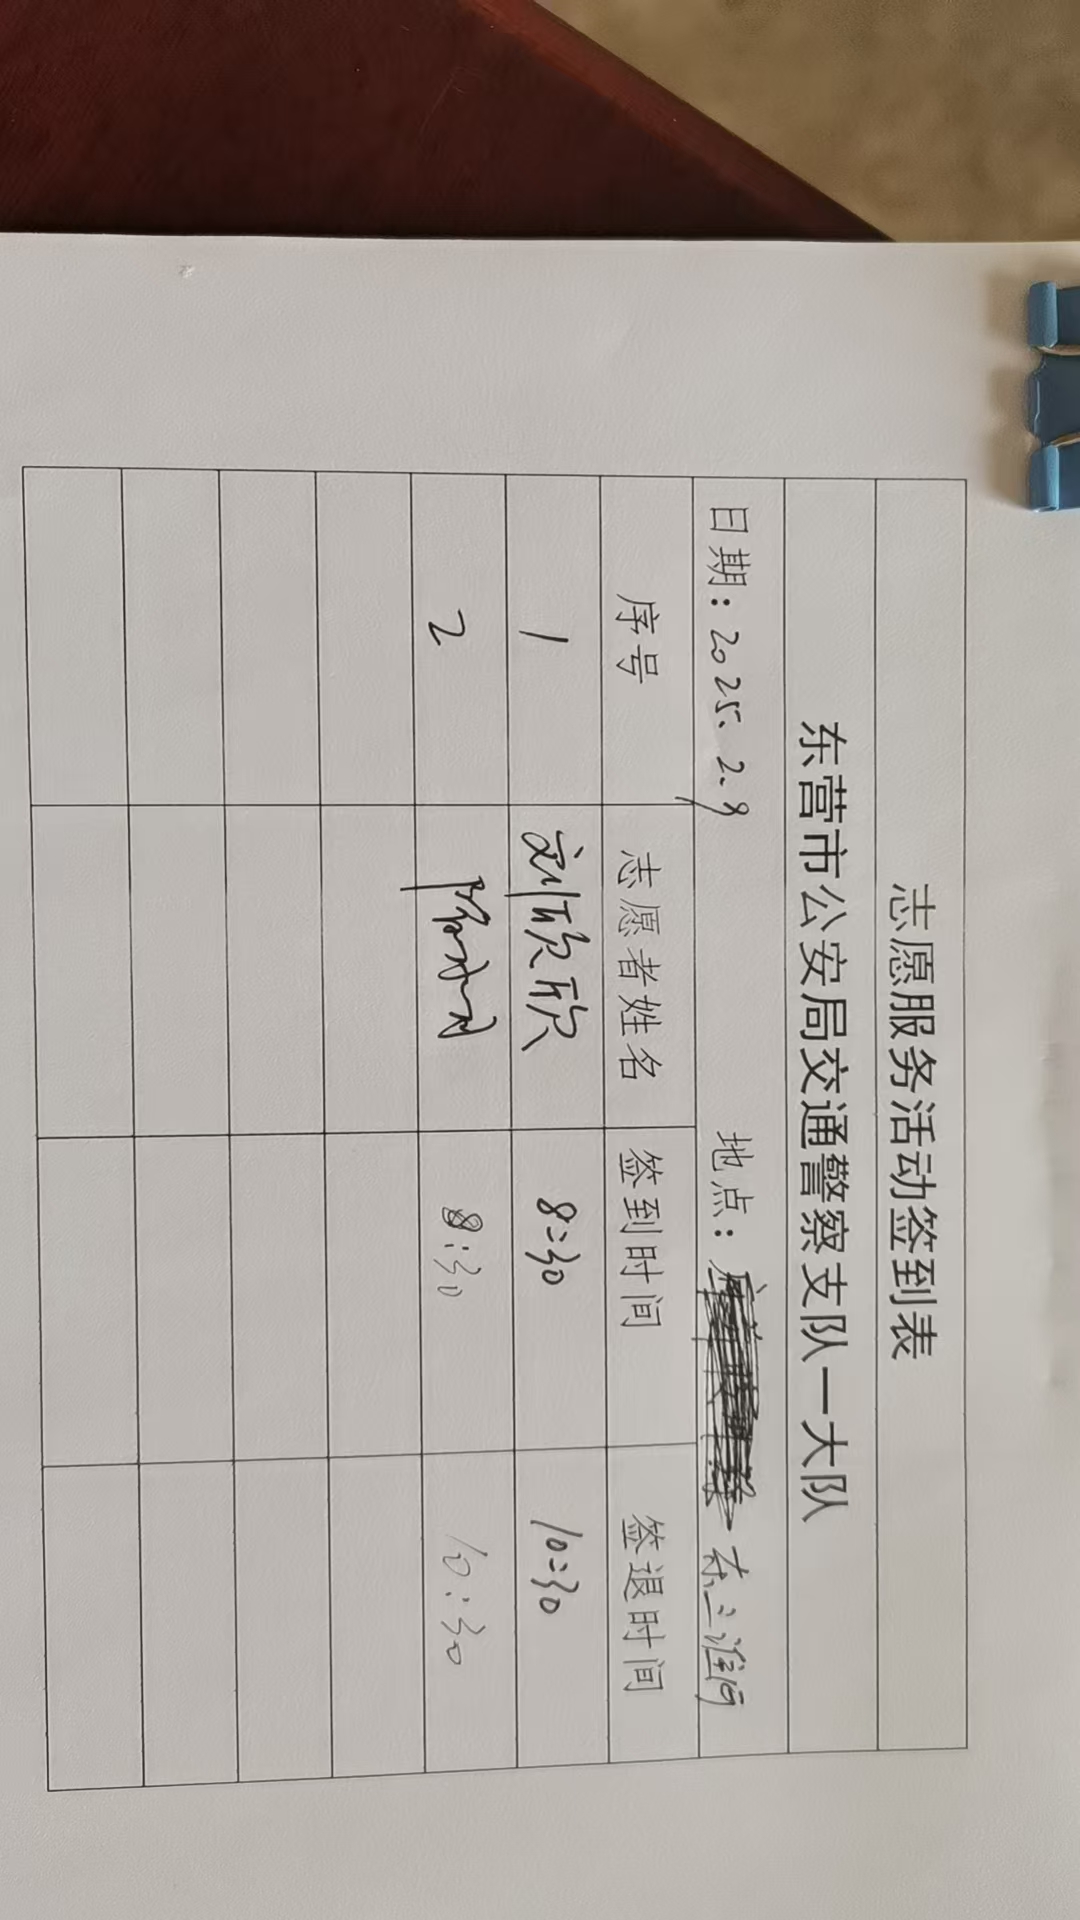 志愿服务活动签到表
东营市公安局交通警察支队一大队
日期：2025.2.9 地点： 东三淮河
序号 志愿者姓名 签到时间 签退时间
1 刘欣欣 8:30 10:30
2 8:30 10:30